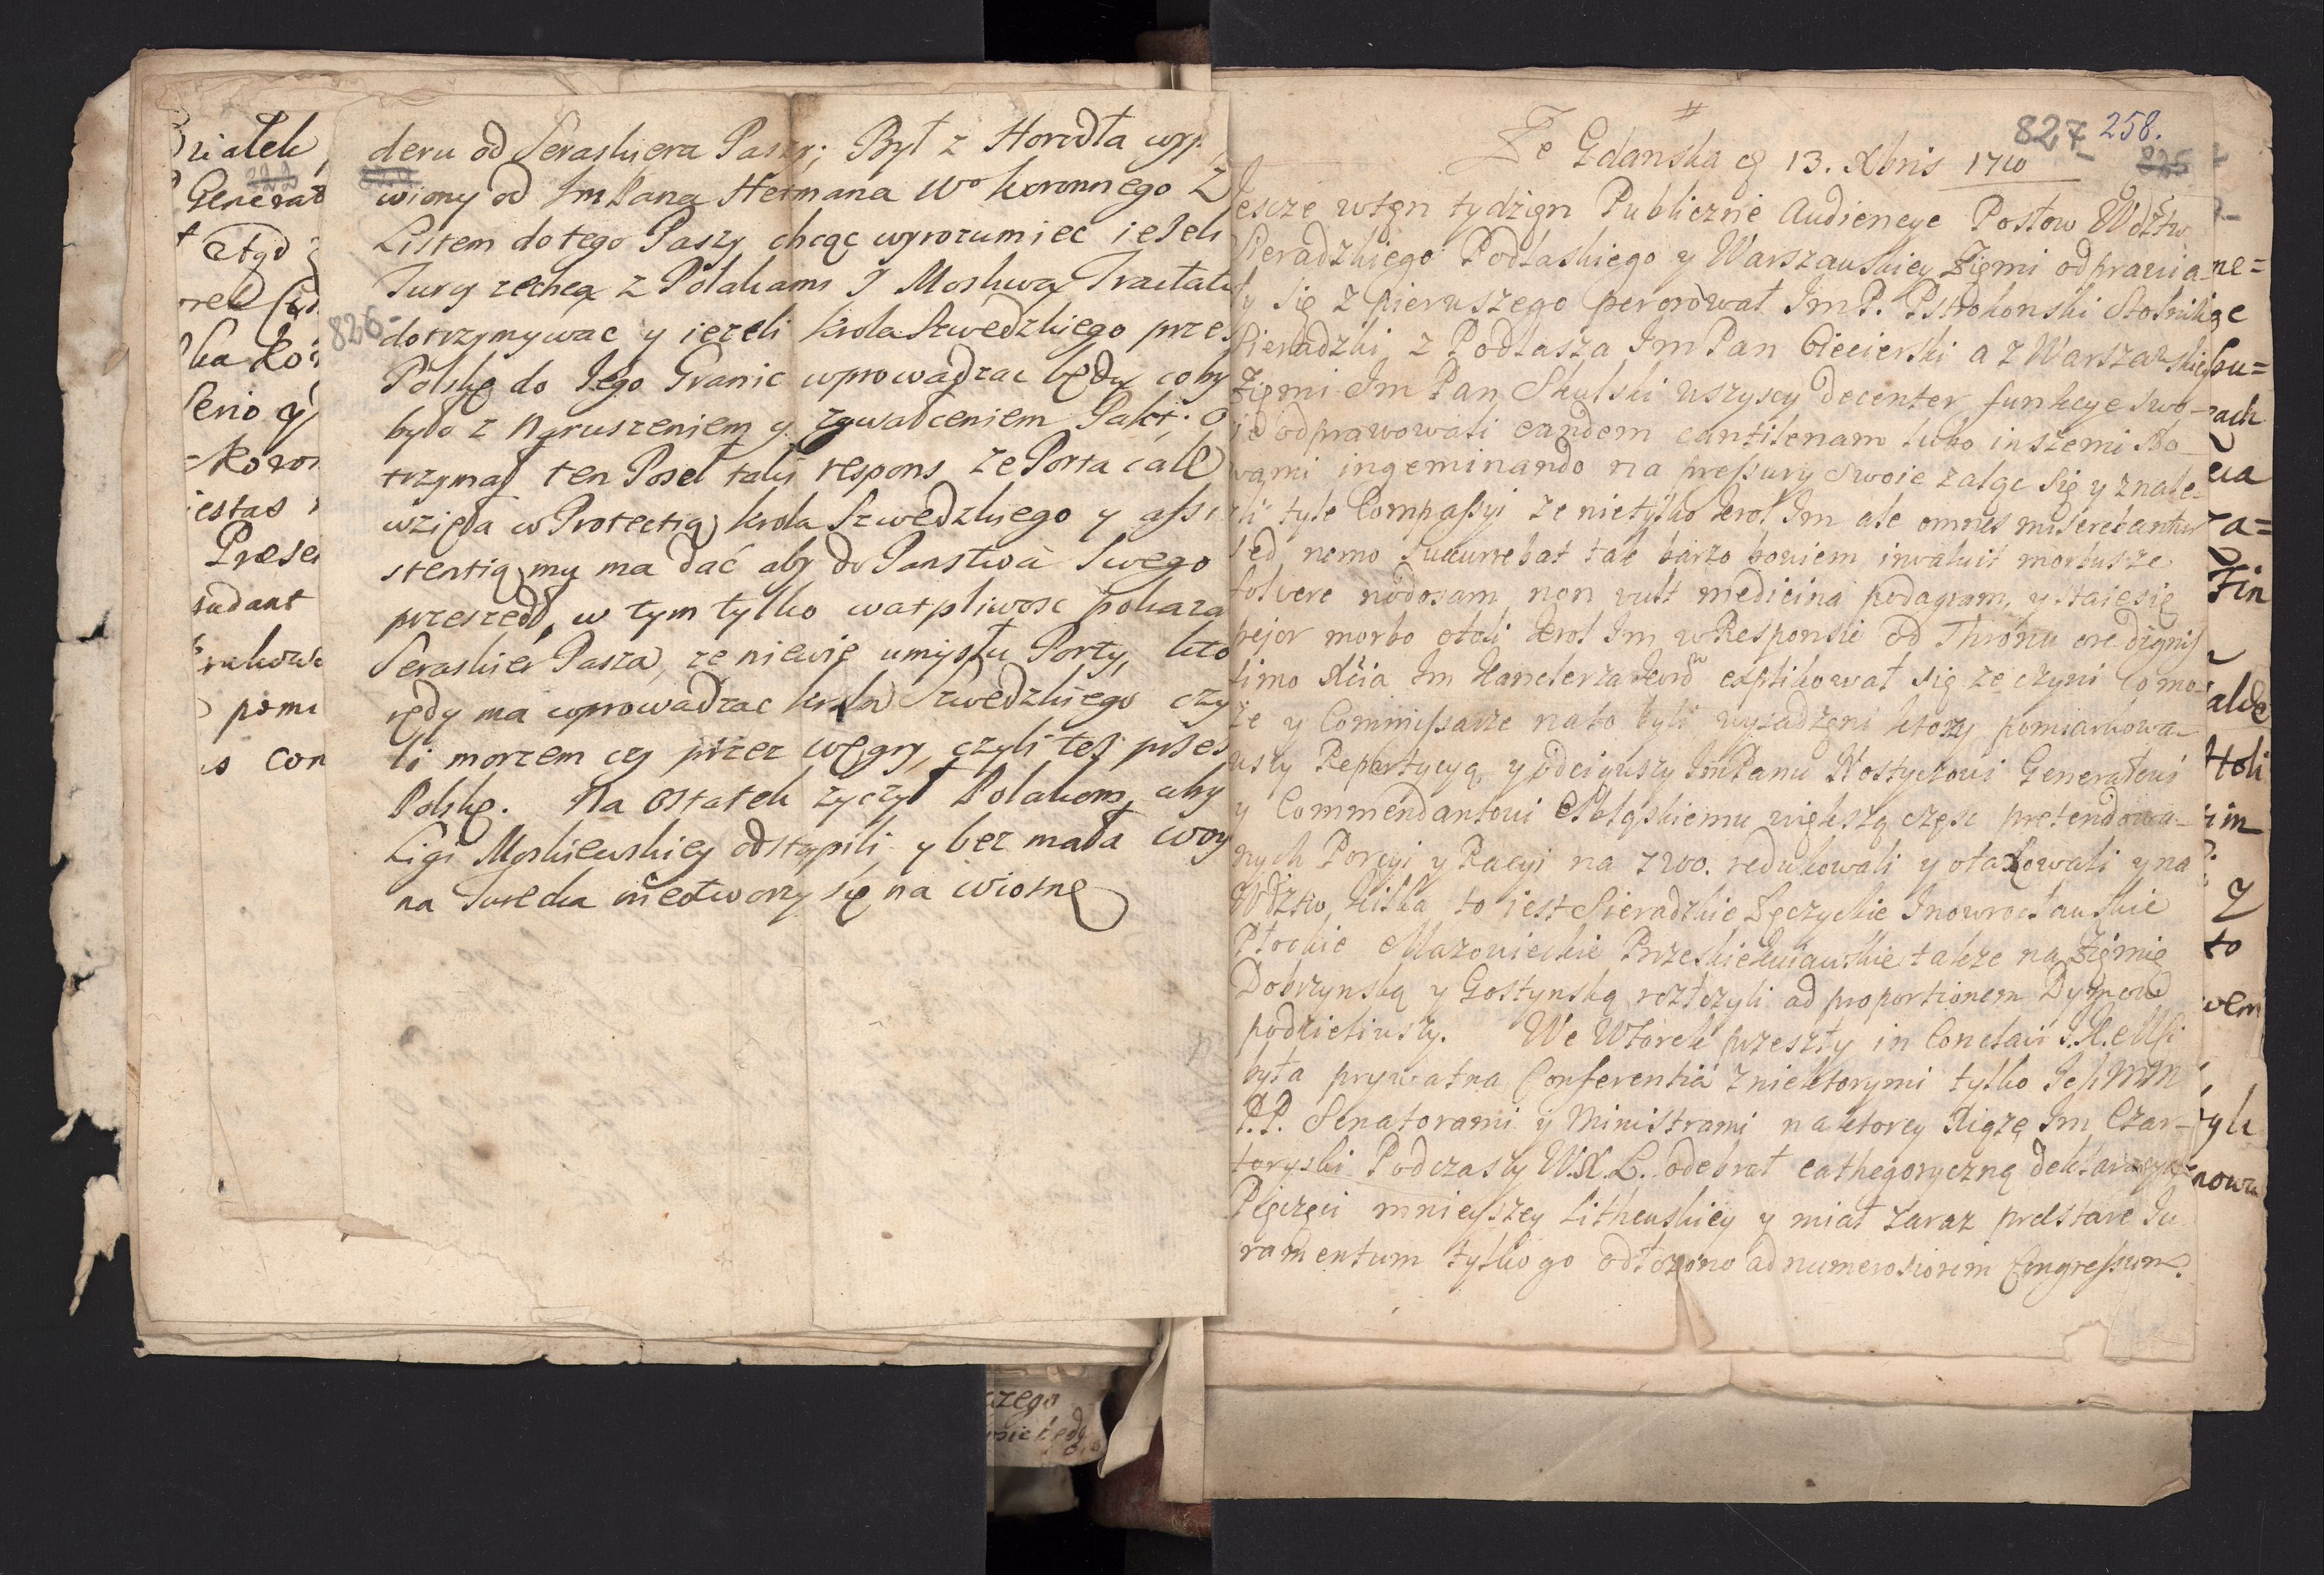 deru od Seraskiera Paszy; Był z Horodła wyp
wiony od Im Pana Hetmana Wo koronnego Z
Listem do tego Paszy chcąc wyrozumiec ieżeli
Turcy zechcą z Polakami I Moskwą Tractatu
dotrzymywac y iezeli krola Szwedzkiego przes
Polskę do Iego Granic wprowadzac będą coby
było z Naruszeniem y zgwałceniem Pakt; O
trzymał ten Posel talij respons ze Porta cale
wzięła w Protectią krola Szwedzkiego y assi
stentią mu ma dać aby do Panstwa Swego
przeszedł, w tym tylko wątpliwosc pokaza
Seraskier Pasza, ze niewie umysłu Porty, kto
rędy ma wprowadzac krola Szwedzkiego czy
li morzem czy przez węgry, czyli też przes
Polskę. Na Ostatek życzył Polakom, aby
Ligi Moskiewskiey odstąpili y bez mała woy
na Turecka nieotworzy się na wiosnę
826-
Ze Gdanska d 13. Xbris 1710
827 258.
Iescze wtęn tydzięn Publicznie Audiencye Posłow Wdztw
Sieradzkiego Podlaskiego y Warszauskiey Zięmi odprawia
ły się z pieruszego perorował ImP. Pstrokonski Stolnik
Sieradzki, z Podlasza Im Pan Ciecierski a z Warszawskiey
Zięmi Im Pan Skulski wszyscy decenter funkcye swo-
ie odprawowali eandem cantilenam lubo inszemi Sło-
wami ingeminando na pressury Swoie zaląc się y znale-
zli tyle Compassyi ze nietylko krol Im ale omnes miserebantur
sed nemo Sucurrebat tak barzo bowiem invaluit morbus ze
solvere nodosam non vult medicina podagram, y staie się
pejor morbo etoli krol Im w Responsie od Thronu ore dignis
simo Xcia Im Kanclerza explikował się ze czyni Co mo-
ze y Commissarze na to byli wysadzęni ktorzy pomiarkowa-
wszy Repartycyą y odciąwszy ImPanu Nostycowi Generałowi
y Commendantowi Elbląskiemu większą częsc pretendowa-
nych Porcyi y Racyi na 7200. redukowali y otaxowali y na
Wdztw kilka to iest Sieradzkie Łęczyckie Inowrocłauskie
Płockie Mazowieckie Brzeskiekuiawskie także na Zięmię
Dobrzynską y Gostynską rozłozyli ad proportionem Dymow
podzieliwszy. We Wtorek przeszły in Conclavi J.K.Msci
była prywatna Conferentia z niektorymi tylko Ichmm
P.P. Senatorami y Ministrami na ktorey Xiązę Im Czar-
toryski Podczaszy W.X.L. odebrał cathegoryczną deklaracyą
Pięczęci mnieyszey Lithewskiey y miał zaraz prestare Iu
ramentum tylko go odłozono ad numerosiorem Congressum.